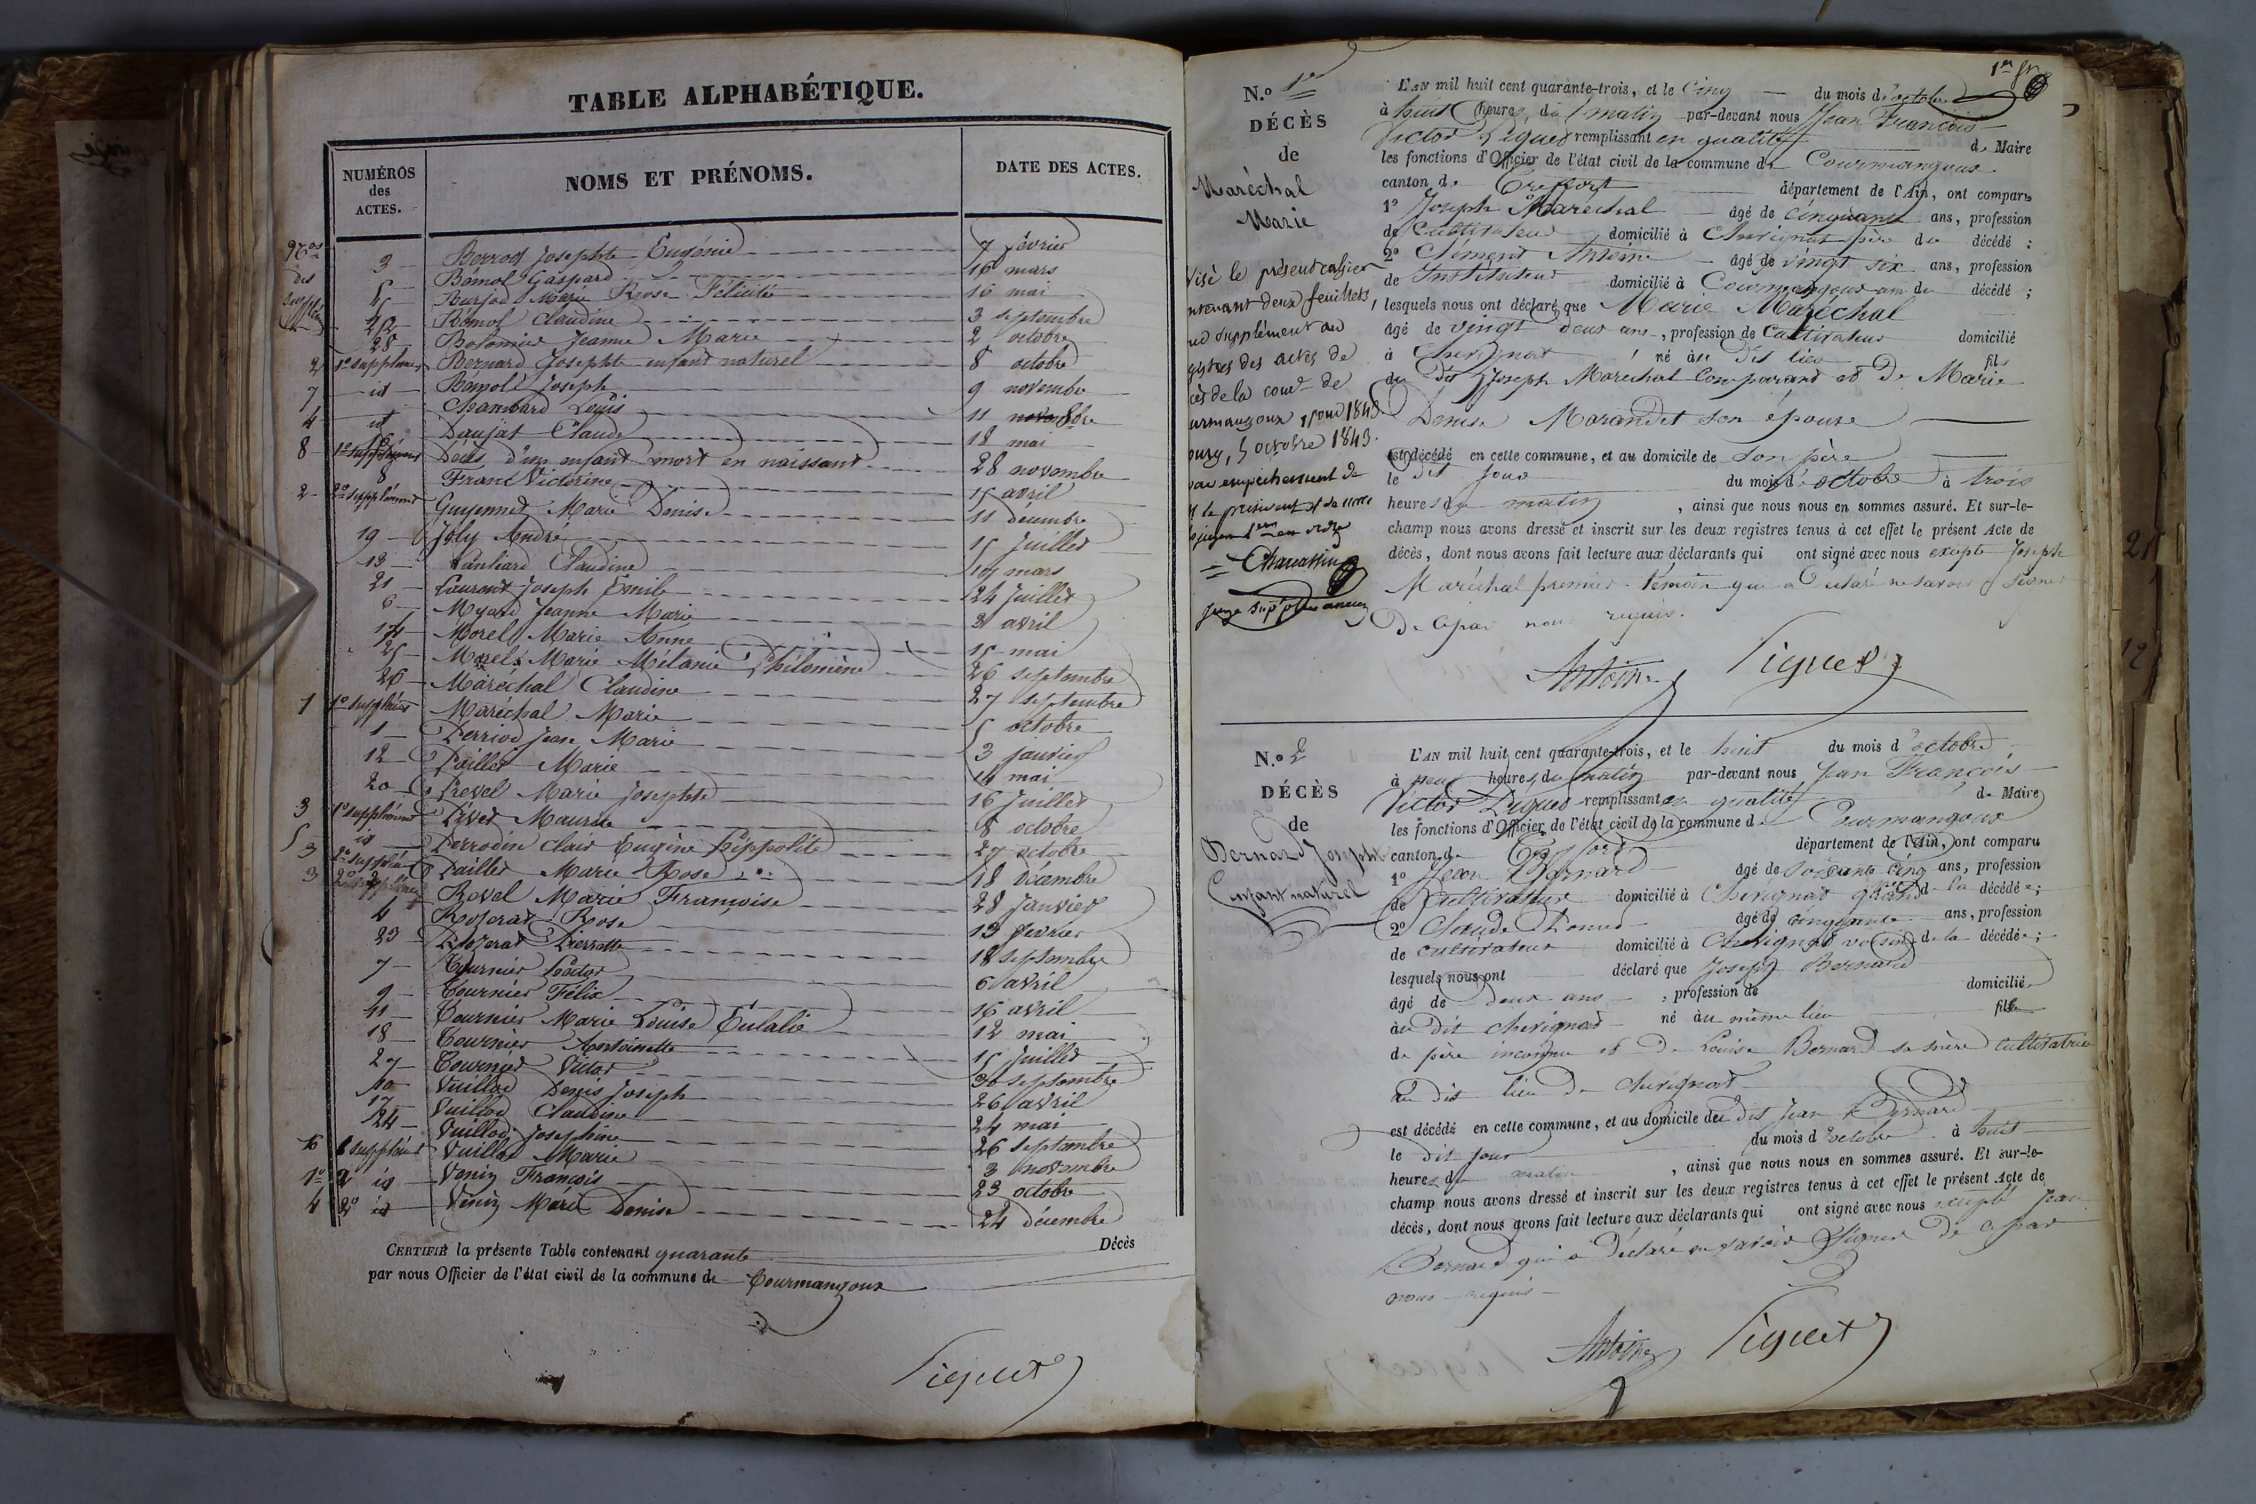 TABLE ALPHABÉTIQUE.
NUMÉROS des ACTES.
NOMS ET PRÉNOMS.
DATE DES ACTES.
Nos des supplém
3 Josephte Eugénie 7 février
Bomol Gaspard 16 mars
Marie Rose Félicité 16 mai
Bomol Claudine 3 septembre
28 Jeanne Marie 2 octobre
2 1er supplément Bernard Josephte enfant naturel 8 octobre
7 id Joseph 9 novembre
4 id Chambard Louis 11 8bre
Daujat Claude 18 mai
8 1er supplément Décès d'un enfant mort en naissant 28 novembre
8 Franc Victorine 15 avril
2 2e supplément Guyennet Marie Denise 11 décembre
19 Joly André 15 Juillet
13 Claudine 19 mars
21 Laurent Joseph Emile 24 Juillet
6 Myard Jeanne Marie 3 avril
14 Morel Marie Anne 15 mai
25 Morel Marie Mélanie Philomène 26 septembre
26 Maréchal Claudine 27 septembre
1 1er supplément Maréchal Marie 5 octobre
1 Perriod Jean Marie 3 Janvier
12 Paillet Marie 14 mai
20 Prevel Marie Josephte 16 Juillet
3 1er supplément Maurice 8 octobre
5 id Perrodin Clair Eugène Hippolite 27 octobre
3 2e supplément Paillet Marie Rose 18 décembre
Revel Marie Françoise 28 Janvier
4 Rozerat Rose 13 février
23 Rozerat Pierrette 18 septembre
7 Tournier 6 avril
9 Tournier Félix 16 avril
11 Tournier Marie Louise Eulalie 12 mai
18 Tournier Antoinette 15 Juillet
27 Tournier Victor 30 septembre
10 Vuillod Denis Joseph 26 avril
17 Vuillod Claudine 24 mai
24 Vuillod Josephine 26 septembre
6 supplément Vuillod Marie 3 novembre
id Venin François 23 octobre
4 2e id Venin Marie Denise 24 décembre
CERTIFIÉ la présente Table contenant quarante Décès
par nous Officier de l'état civil de la commune de Courmangoux
Piquet
1er
N.o 1er
DÉCÈS
de
Maréchal
Marie
Visé le présent cahier
contenant deux feuillets,
supplément au
registres des actes de
décès de la come de
Courmangoux pour 1843
Bourg, 5 octobre 1843.
par empêchement de
le président et de
Chevassus
Juge suppl plus ancien
L'AN mil huit cent quarante-trois, et le Cinq du mois d'octobre
à huit heures du matin par-devant nous Jean François
Victor Piquet remplissant en qualité de Maire
les fonctions d'Officier de l'état civil de la commune de Courmangoux
canton de Treffort département de l'Ain, ont comparu
1o Joseph Maréchal âgé de cinquante ans, profession
de Cultivateur domicilié à Chevignat père du décédé ;
2o Clément Antoine âgé de vingt six ans, profession
de Instituteur domicilié à Courmangoux ami du décédé ;
lesquels nous ont déclaré que Marie Maréchal
âgé de vingt deux ans, profession de Cultivateur domicilié
à Chevignat, né au dit lieu fils
du dit Joseph Maréchal Comparant et De Marie
Denise Marandet son épouse
est décédé en cette commune, et au domicile de son père
le dit jour du mois d'octobre à trois
heures du matin, ainsi que nous nous en sommes assuré. Et sur-le-
champ nous avons dressé et inscrit sur les deux registres tenus à cet effet le présent Acte de
décès, dont nous avons fait lecture aux déclarants qui ont signé avec nous excepté Joseph
Maréchal premier témoin qui a Déclaré ne savoir signer
De ce par nous requis.
Antoine Piquet
N.o 2
DÉCÈS
de
Bernard Josephte
Enfant naturel
L'AN mil huit cent quarante-trois, et le huit du mois d'octobre
à neuf heures du matin par-devant nous Jean François
Victor Piquet remplissant en qualité de Maire
les fonctions d'Officier de l'état civil de la commune de Courmangoux
canton de Treffort département de l'Ain, ont comparu
1o Jean Bernard âgé de soixante cinq ans, profession
de Cultivateur domicilié à Chevignat de la décédée ;
2o Claude âgé de cinquante ans, profession
de cultivateur domicilié à Chevignat voisin de la décédée ;
lesquels nous ont déclaré que Josephte Bernard
âgé de deux ans, profession de domicilié
au dit Chevignat né au même lieu fille
de père inconnu et De Louise Bernard sa mère Cultivatrice
au dit lieu De Chevignat
est décédé en cette commune, et au domicile de dit Jean Bernard
le dit jour du mois d'octobre à huit
heures du matin, ainsi que nous nous en sommes assuré. Et sur-le-
champ nous avons dressé et inscrit sur les deux registres tenus à cet effet le présent Acte de
décès, dont nous avons fait lecture aux déclarants qui ont signé avec nous excepté Jean
Bernard qui a Déclaré ne savoir signer De ce par
nous requis
Antoine Piquet